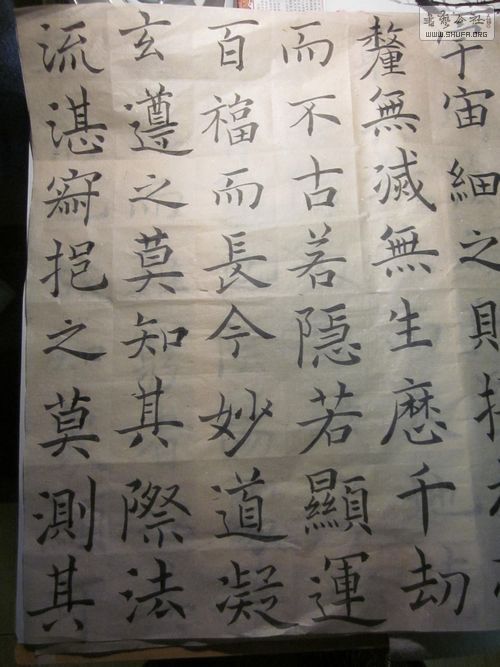 宇宙細之
釐無滅無生歷千劫
而不古若隱若顯運
百福而長今妙道凝
玄遵之莫知其際法
流湛寂挹之莫測其
書藝公社
WWW.SHUFA.ORG